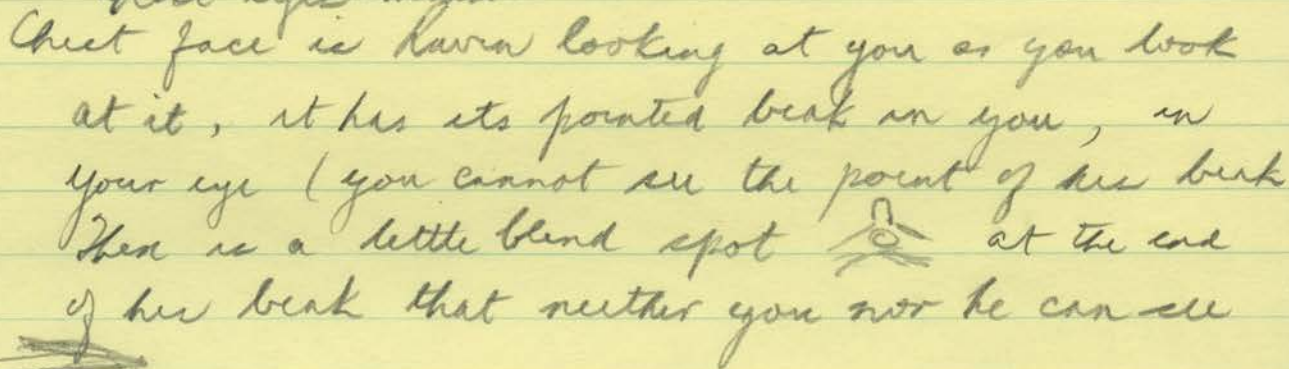 eyes
Chest face is Raven looking at you as you look
at it, it has its pointed beak in you, in
your eye (you cannot see the point of his beak
There is a little blind spot at the end
of his beak that neither you nor he can see